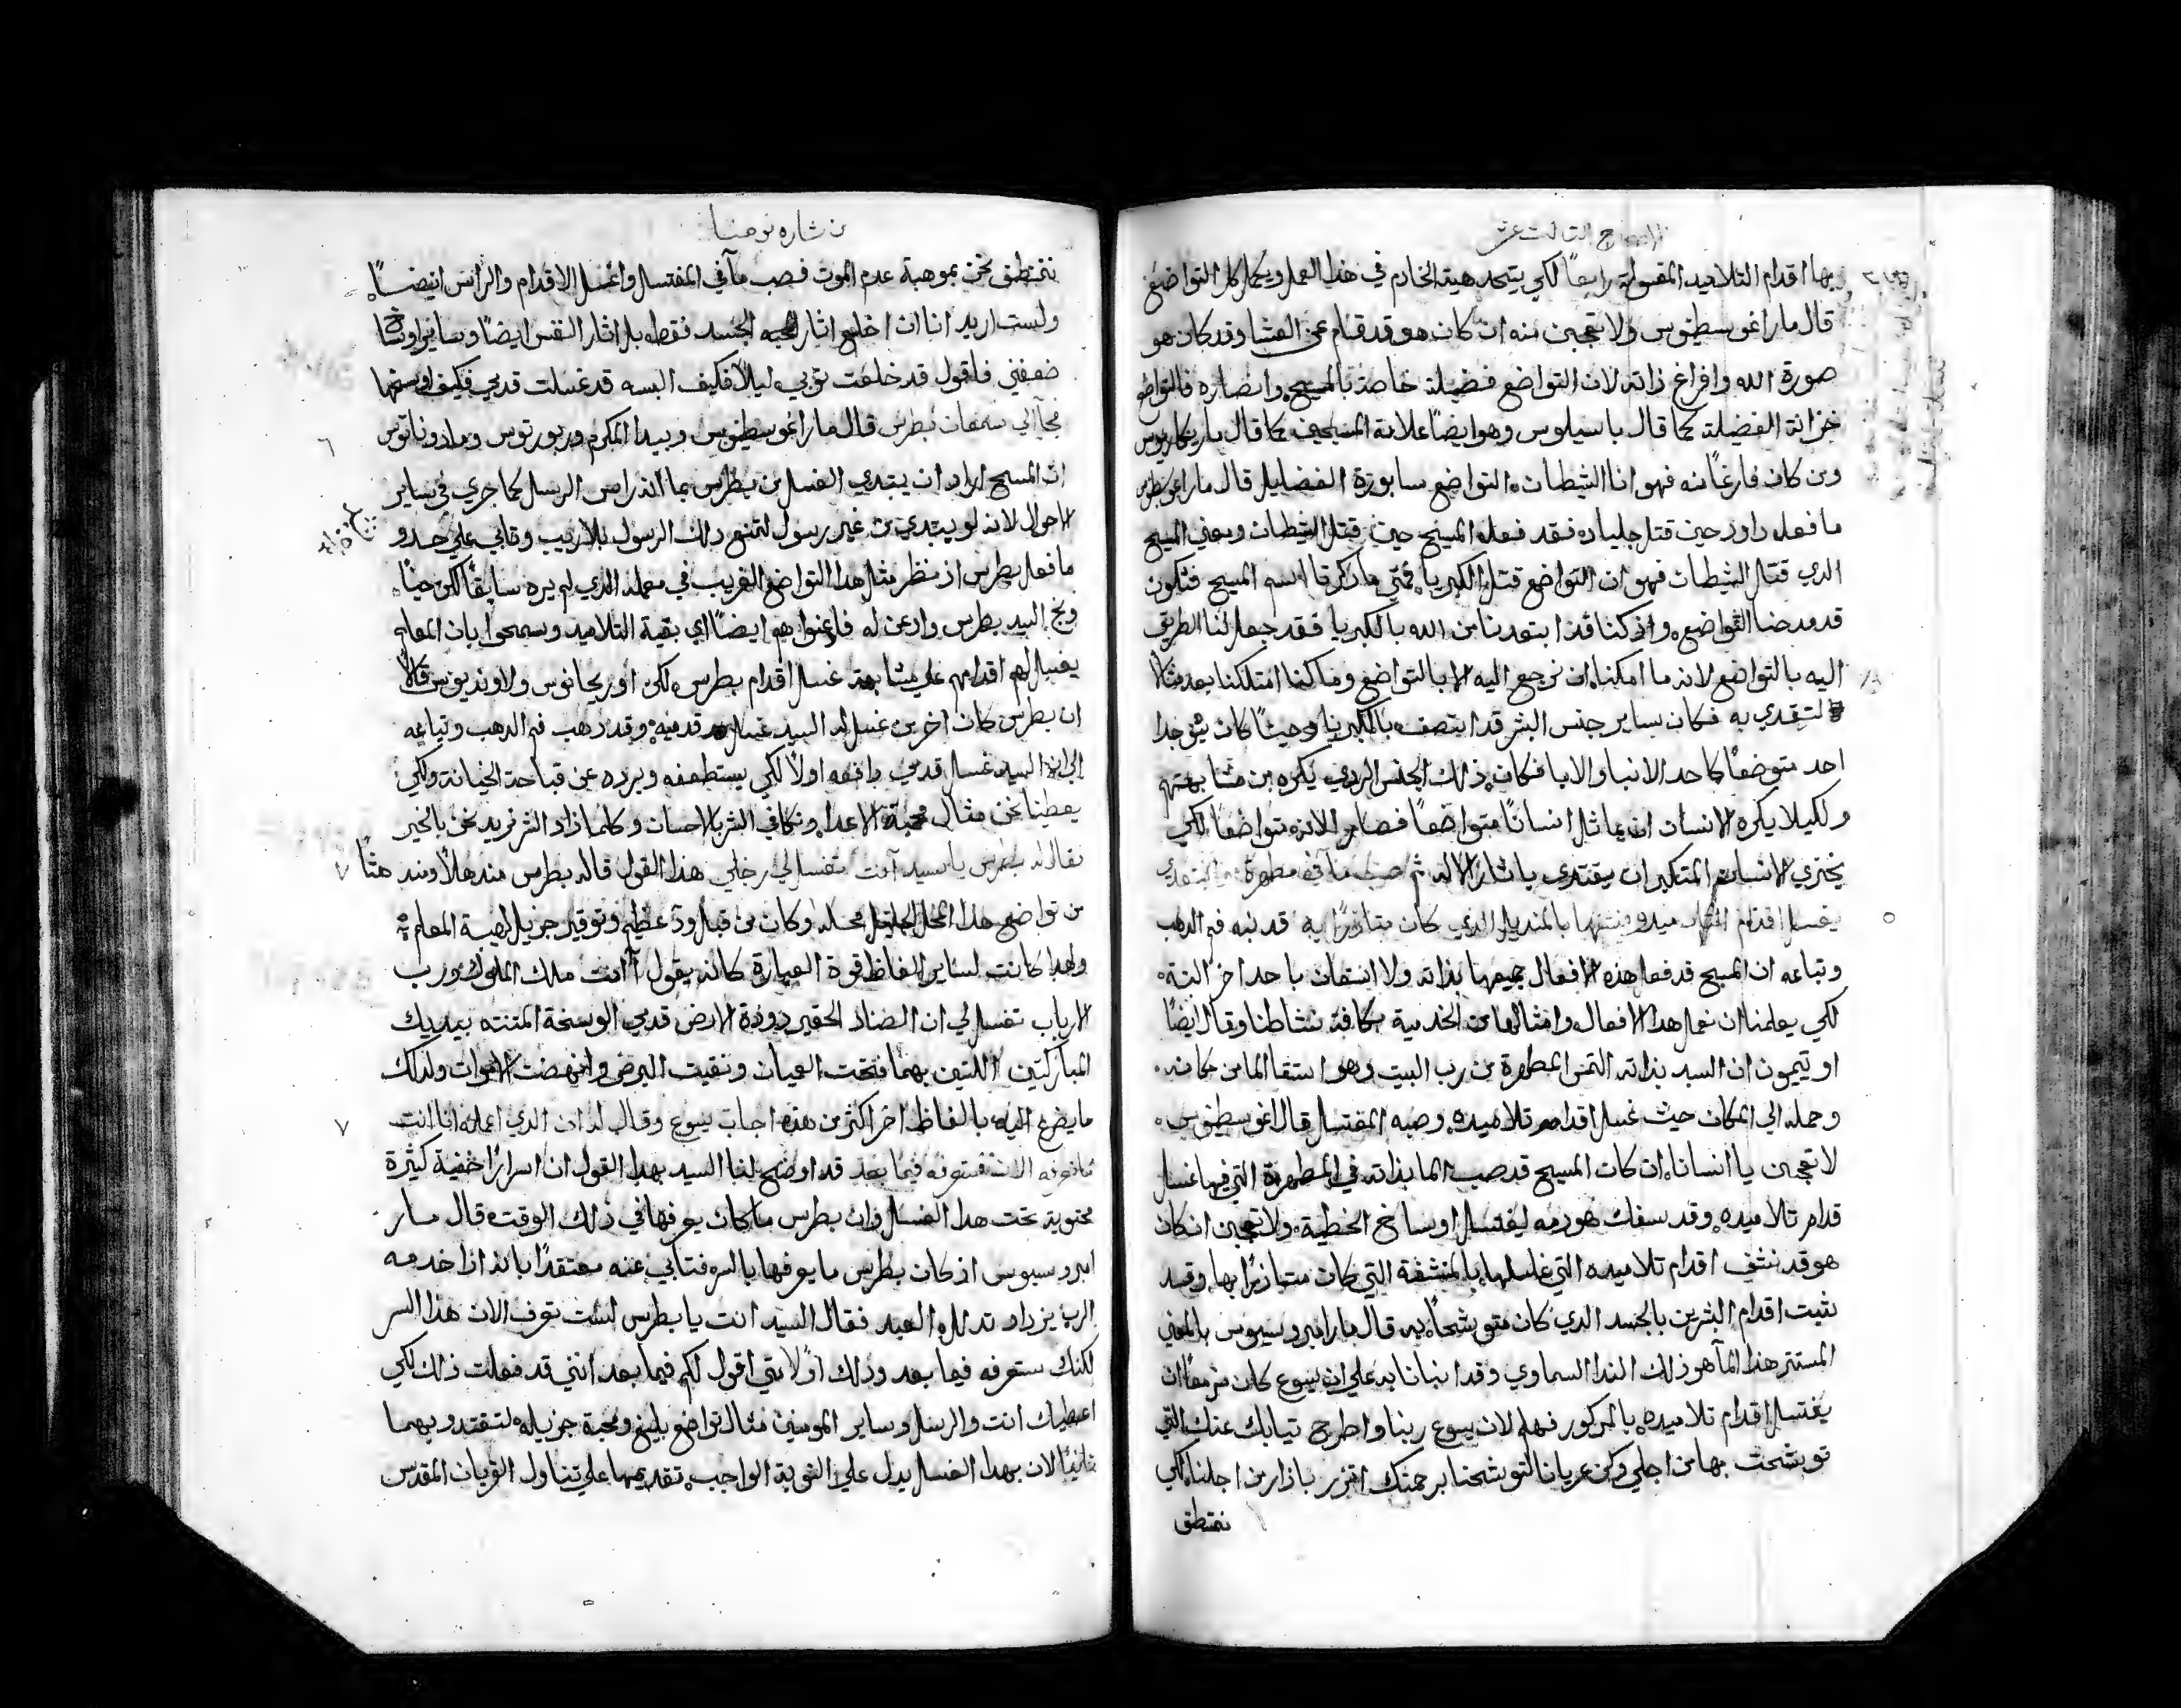 الاصحاح الثالث عشر
بها اقدام التلاميد المغسولة رابعاً لكي يتحد هية الخادم في هذا العمل ويكمل كل التواضع
قال مار اغوسطينوس ولا تعجبن منه ان كان هو قد قام عن العشا وقد كان هو
صورة الله وافراغ ذاته لان التواضع فضيلة خاصة بالمسيح وانصاره فالتواضع
خزانة الفضيلة كما قال باسيليوس وهو ايضاً علامة المسيحيين كما قال مار مكاريوس
ومن كان فارغاً منه فهو انا الشيطان التواضع سابورة الفضايل قال مار اغوسطينوس
ما فعله داود حين قتل جلياده فقد فعله المسيح حين قتل الشيطان ومعني المسيح
الدي قتل الشيطان فهو ان التواضع قتل الكبريا فمتي ما ذكرنا اسم المسيح فنكون
قد مدحنا التواضع واذ كنا قد ابتعدنا من الله بالكبريا فقد جعل لنا الطريق
اليه بالتواضع لانه ما امكننا ان نرجع اليه الا بالتواضع وما كنا امتلكنا بعد مثالا
لنقتدي به فكان ساير جنس البشر قد اتصف بالكبريا وحيثما كان يوجدا
احد متوضعاً كاحد الانبيا والابا فكان ذلك الجنس الردي يكره من مشابهتهم
ولكيلا يكره الانسان ان يماثل انساناً متواضعاً فصار الاله متواضعاً لكي
يختزي الانسان المتكبر ان يقتدي باثار الاله ثم صب مآ في مطهرة وابتدي
يغسل اقدام التلاميد وينشفها بالمنديل الدي كان متازراً به قد نبه فم الدهب
وتباعه ان المسيح قد فعل هذه الافعال جميعها بذاته ولا استعان باحد اخر البتة
لكي يعلمنا ان نعمل هدا الافعال وامثالها من الخدمية بكافة نشاطنا وقال ايضاً
اوتيميون ان السيد بذاته التمس المطهرة من رب البيت وهو استقا الما من مكانه
وحمله الي المكان حيث غسل اقدام تلاميده وصبه المغتسل قال اغوسطينوس
لا تعجبن يا انسانا ان كان المسيح قد صب الما بذاته في المطهرة التي فيها غسل
قدام تلاميده وقد سفك هو دمه ليغتسل اوساخ الخطية ولا تعجبن ان كان
هو قد نشف اقدام تلاميده التي غسلها بالمنشفة التي كان متازراً بها وقد
ثبت اقدام البشرين بالجسد الدي كان متوشحاً به قال مار امبروسيوس بالمعني
المستتر هذا المآ هو ذلك الندا السماوي وقد انبانا به علي ان يسوع كان مزمعاً ان
يغتسل اقدام تلاميده بالمركور فهلم لان يسوع ربنا واطرح تيابك عنك التي
توشحت بها من اجلي وكن عريانا لتوشحنا برحمتك اتزر بازار من اجلنا لكي
نمتطق
من بشارة يوحنا
نتمنطق نحن بموهبة عدم الموت فصب مآ في المغتسل واغسل الاقدام والراس ايضاً
ولست اريد انا ان اخلع اثار الجسد فقط بل اثار النفس ايضاً وساير اوساخ
ضعفي فاقول قد خلعت توبي ليلاً فكيف البسه قد غسلت قدمي فكيف اوسخهما
فجآ الي سمعان بطرس قال مار اغوسطينوس وبيدا المكرم وروبرتوس ومادوناتوس
ان المسيح اراد ان يبتدي الغسل من بطرس بما انه راس الرسل كما جري في ساير
الاحوال لانه لو يبتدي من غير رسول لتمنع ذلك الرسول بلا ريب وتابي علي حدو
ما فعل بطرس اذ نظر مثل هدا التواضع الغريب في معلمه الدي لم يره سابقاً لكن حينا
ونج السيد بطرس وادعن له فادعنوا هم ايضاً اي بقية التلاميد وسمحوا بان المعلم
يغسل لهم اقدامهم علي مشابهة غسل اقدام بطرس لكن اوريجانوس ولاونديوس قالا
ان بطرس كان اخر من غسل له السيد قدميه وقد دهب فم الدهب وتباعه
الي ان السيد غسل قدمي دافعه اولاً لكي يستعطفه ويرده عن قباحة الخيانة ولكي
يعطينا نحن مثال محبة الاعدا ونكافي الشر بالاحسان وكلما زاد الشر نزيد نحن بالخير
فقال له بطرس يا سيد آنت تغسل لي رجلي هذا القول قاله بطرس مندهلاً ومندهشاً
من تواضع هدا المحل الجليل محله وكان من قبل ود عظيم وتوقير جزيل لهيبة المعلم
ولهدا كانت لساير الفاظ قوة العبارة كانه يقول آانت ملك الملوك ورب
الارباب تغسل لي ان الضناد الحقير دودة الارض قدمي الوسخة المنتنه بيديك
المباركتين اللتين بهما فتحت العميان ونقيت البرص وانهضت الاموات ولدلك
ما يضرع اليه بالفاظ اخر اكثر من هده اجاب يسوع وقال له ان الدي اعمله انا انت
ما تعرفه الان ستعرفه فيما بعد قد اوضح لنا السيد بهدا القول ان اسراراً خفية كثيرة
محتوية تحت هدا الغسل وان بطرس ما كان يعرفها في ذلك الوقت قال مار
امبروسيوس اذ كان بطرس ما يعرفها بالسر فتابي عنه معتقداً بانه اذا خدمه
الرب يزداد تدلل العبد فقال السيد انت يا بطرس لست تعرف الان هذا السر
لكنك ستعرفه فيما بعد ودلك اولاً متي اقول لكم فيما بعد انني قد فعلت ذلك لكي
اعطيك انت والرسل وساير المومنين مثال تواضع بليغ ومحبة جزيله لتقتدو بهما
ثانياً لان بهدا الغسل يدل علي التوبة الواجب تقديمها علي تناول القربان المقدس